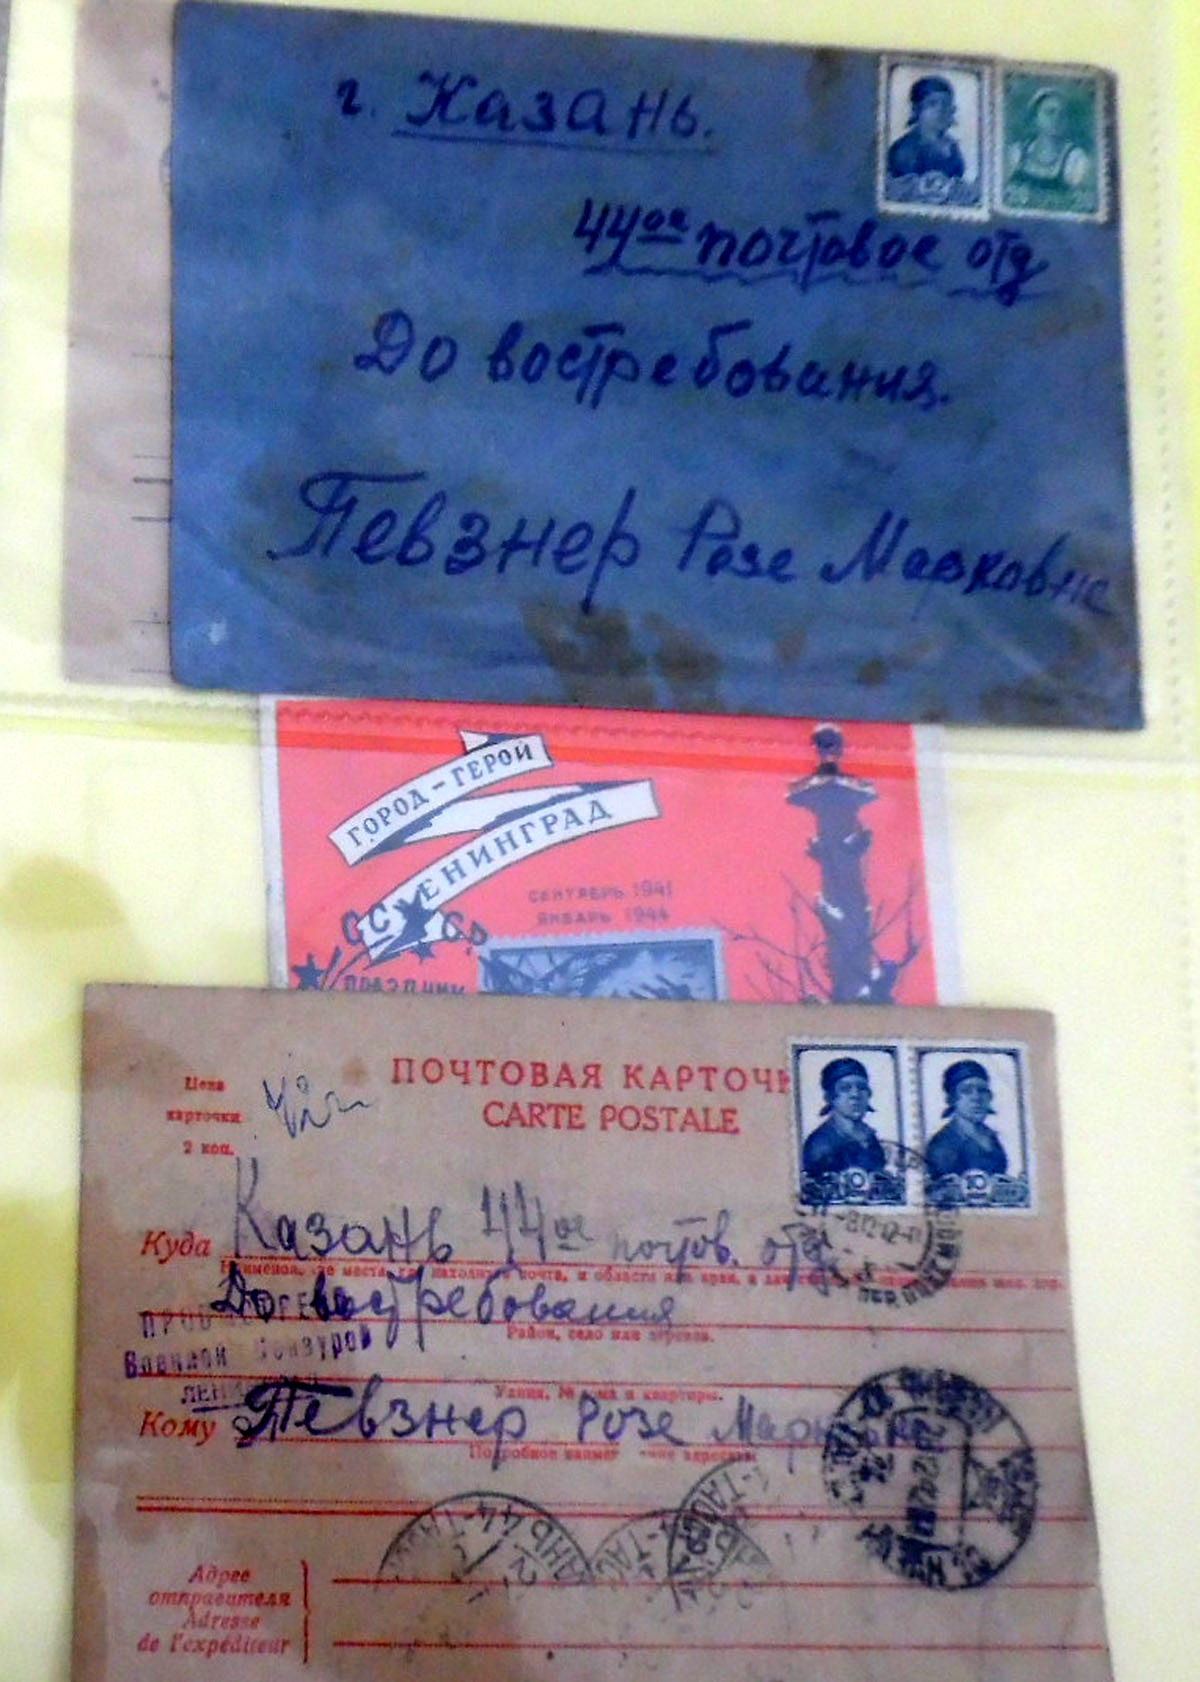 г. Казань.
44ое почтовое отд
До востребования.
Певзнер Розе Марковне
ГОРОД-ГЕРОЙ
ЛЕНИНГРАД
СЕНТЯБРЬ 1941
ЯНВАРЬ 1944
СССР
ПРАЗДНИК
ПОЧТОВАЯ КАРТОЧ
CARTE POSTALE
Цена
карточки
2 коп.
10
10
Куда Казань 44ое почтов. отд.
До востребования
Район, село или деревня.
Военной Цензурой
Улица, № дома и квартиры.
Кому Певзнер Розе
44-ТАТ
Адрес
отправителя
Adresse
de l'expéditeur